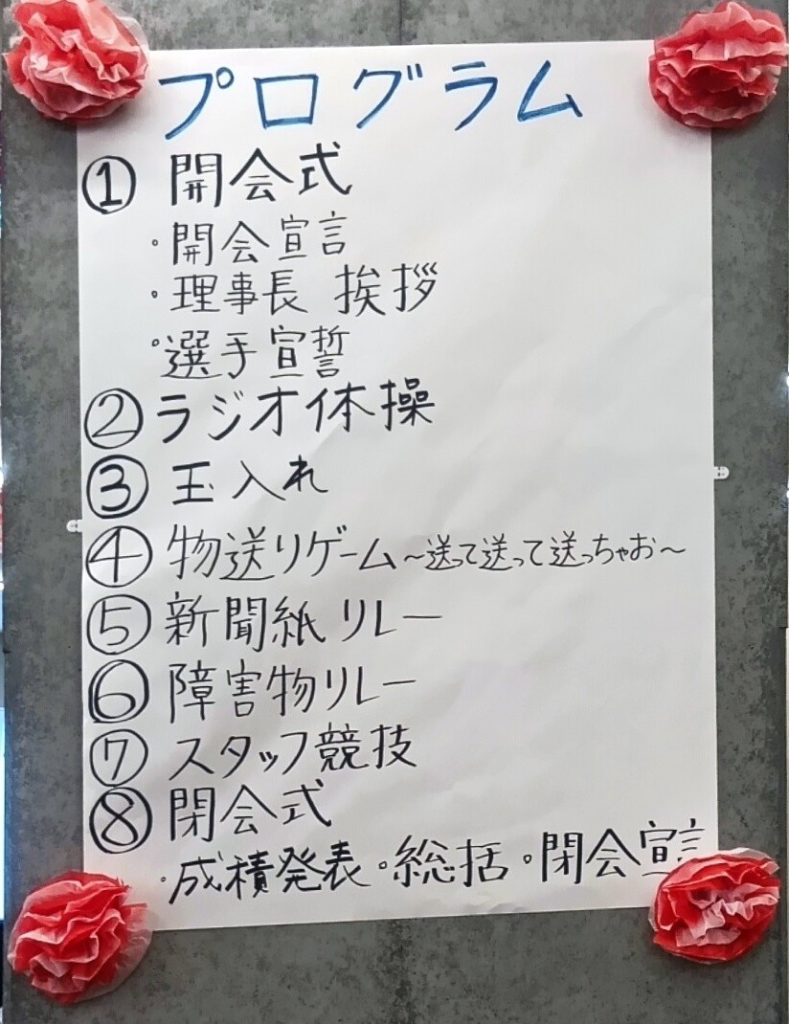 プログラム
① 開会式
・開会宣言
・理事長 挨拶
・選手宣誓
② ラジオ体操
③ 玉入れ
④ 物送りゲーム〜送って送って送っちゃお〜
⑤ 新聞紙リレー
⑥ 障害物リレー
⑦ スタッフ競技
⑧ 閉会式
・成積発表・総括・閉会宣言